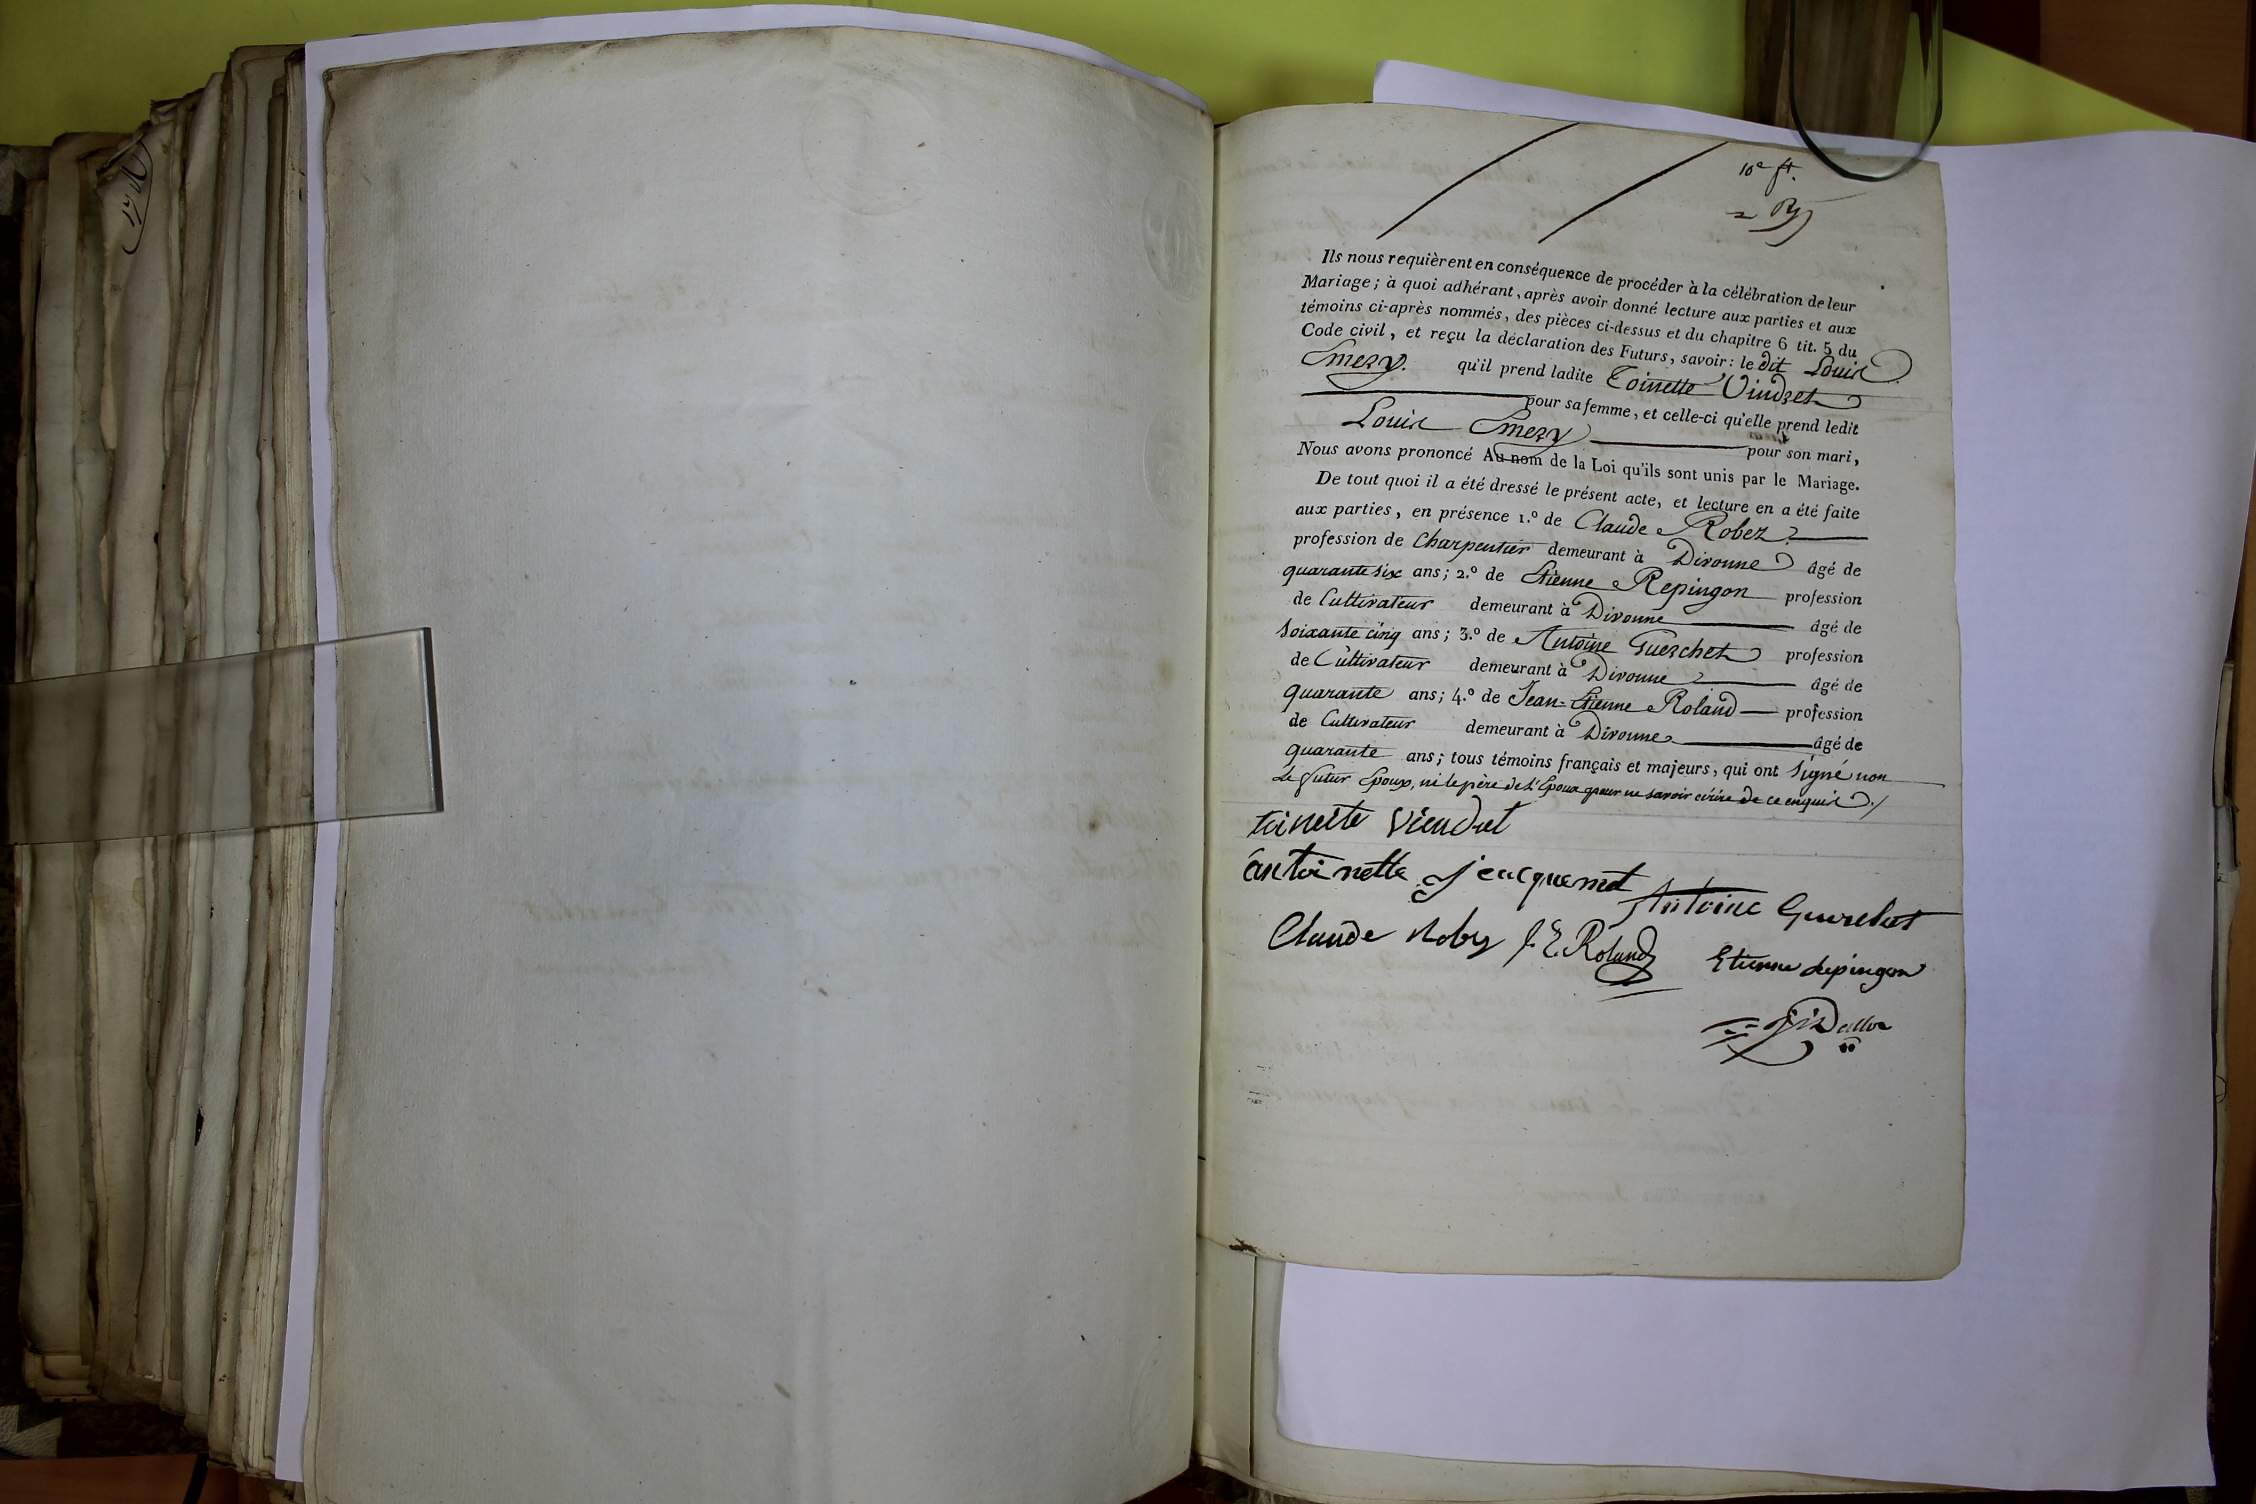 10e ft.
Ils nous requièrent en conséquence de procéder à la célébration de leur
Mariage; à quoi adhérant, après avoir donné lecture aux parties et aux
témoins ci-après nommés, des pièces ci-dessus et du chapitre 6 tit. 5 du
Code civil, et reçu la déclaration des Futurs, savoir: le dit Louis
Emery. qu'il prend ladite Toinette Vindret
pour sa femme, et celle-ci qu'elle prend ledit
Louis Emery pour son mari,
Nous avons prononcé Au nom de la Loi qu'ils sont unis par le Mariage.
De tout quoi il a été dressé le présent acte, et lecture en a été faite
aux parties, en présence 1.º de Claude Robez
profession de Charpentier demeurant à Divonne âgé de
quarante six ans; 2.º de Etienne Repingon profession
de Cultivateur demeurant à Divonne âgé de
soixante cinq ans; 3.º de Antoine Guerchet profession
de Cultivateur demeurant à Divonne âgé de
quarante ans; 4.º de Jean-Etienne Roland profession
de Cultivateur demeurant à Divonne âgé de
quarante ans; tous témoins français et majeurs, qui ont signé non
Le futur Epoux, ni le père de l'Epoux pour ne savoir écrire de ce enquis ./
toinette viendret
antoinette jeacquemet
Antoine Guerchet
Claude Robez J. E. Roland
Etienne depingon